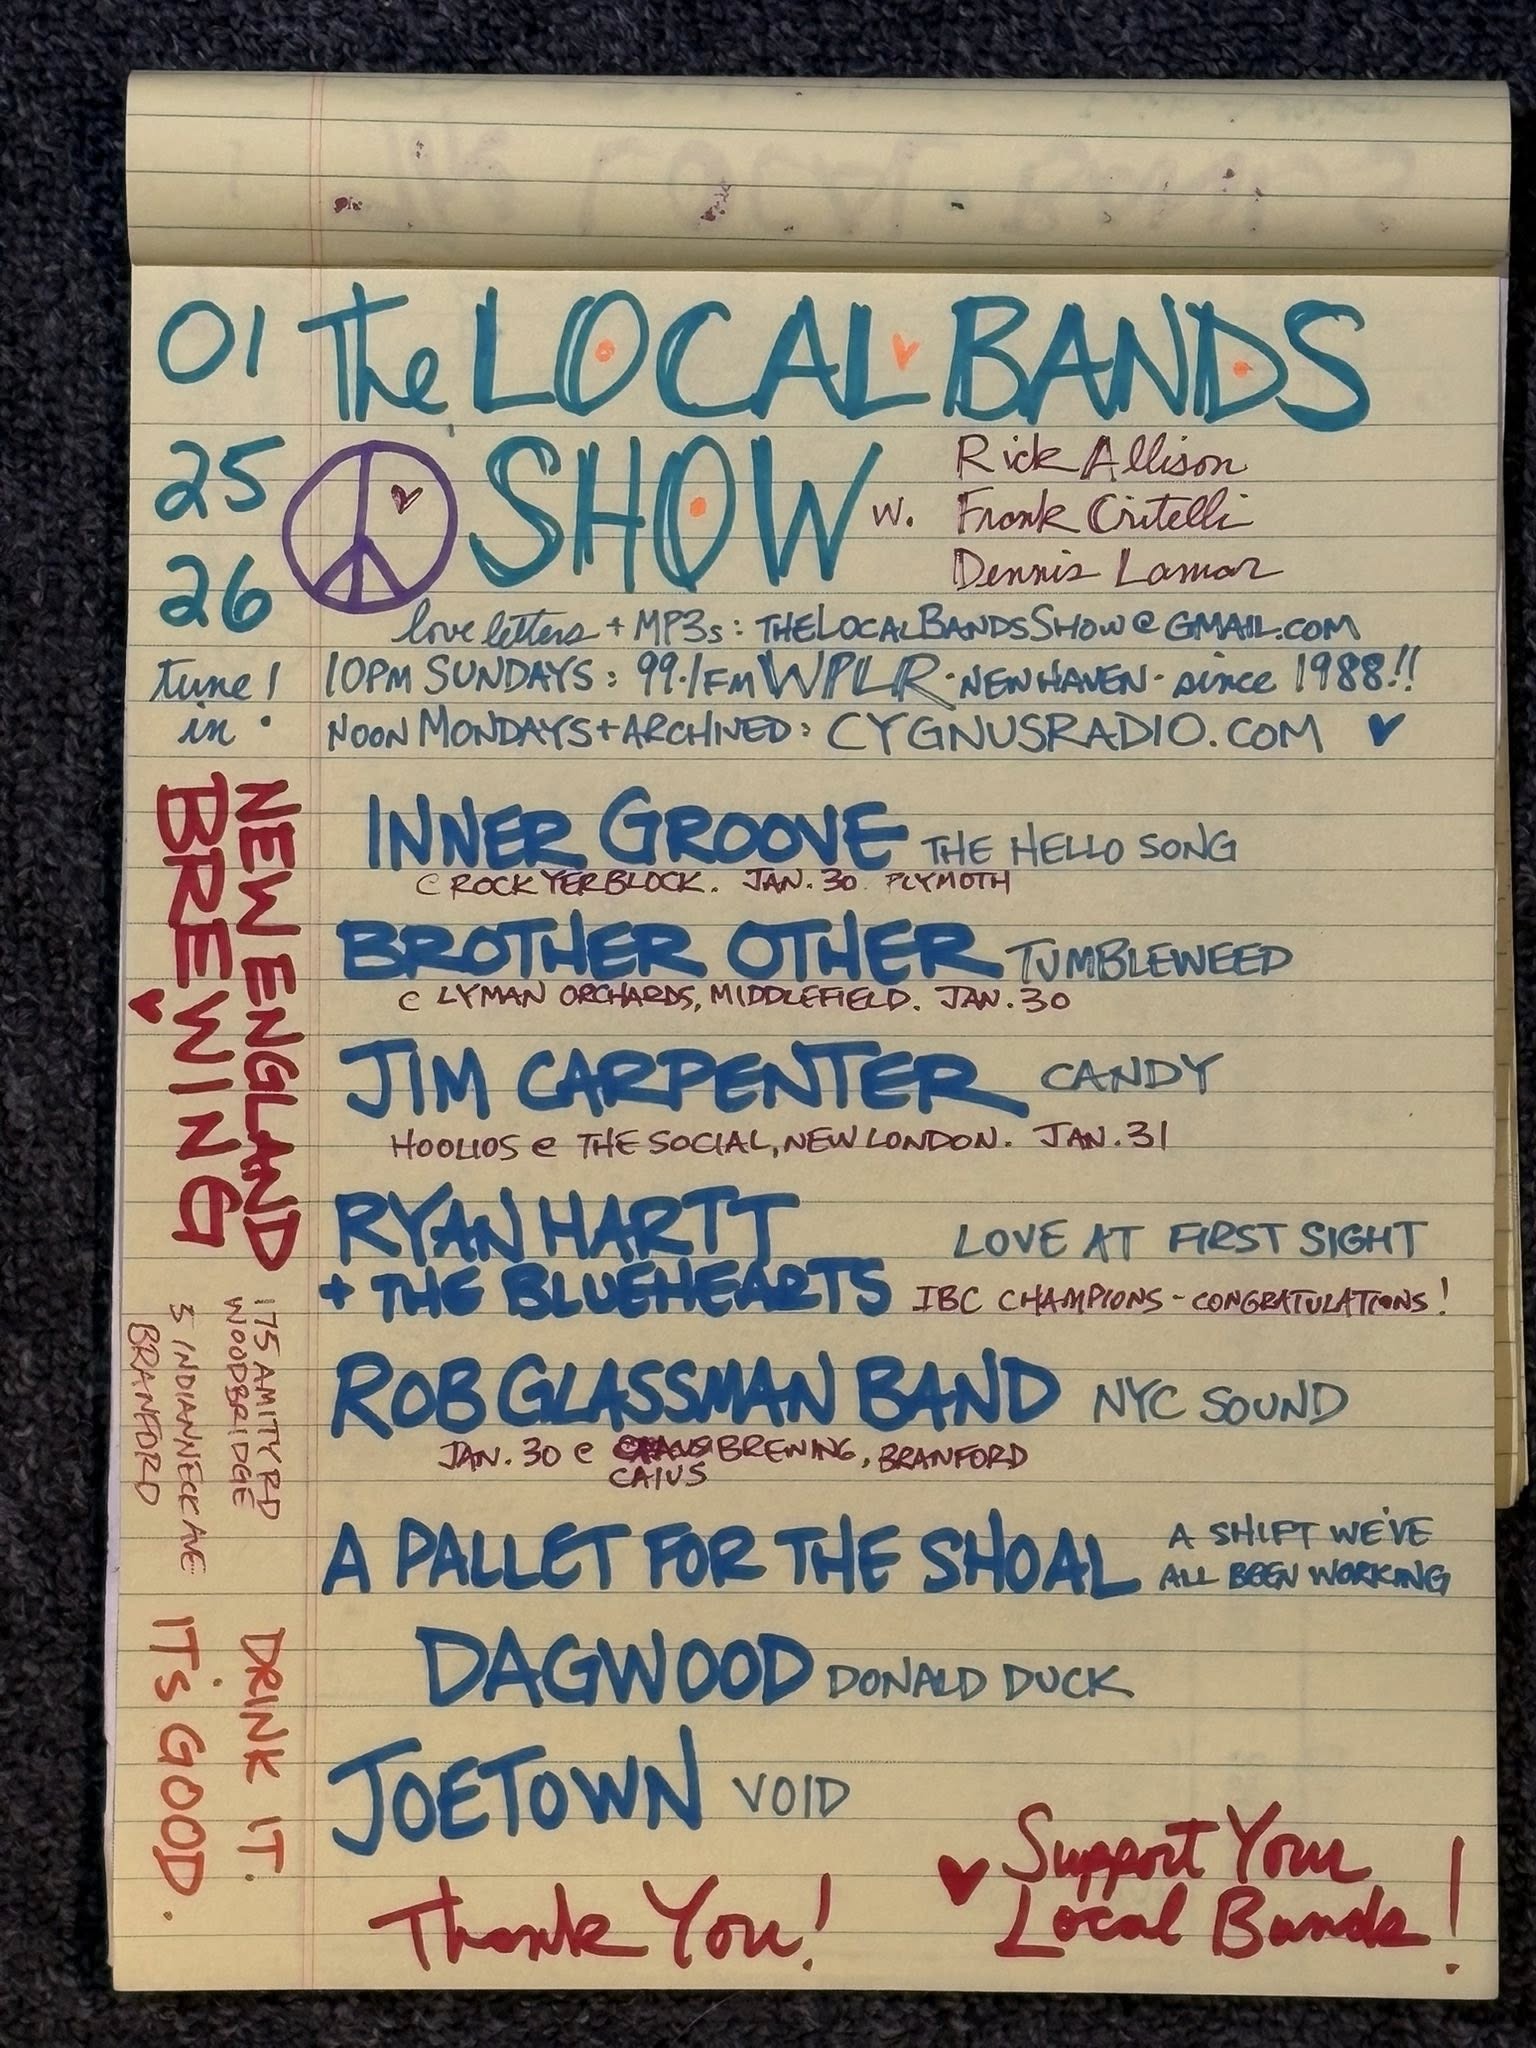 01
25
26
The LOCAL BANDS
SHOW w.
Rick Allison
Frank Critelli
Dennis Lamar
love letters + MP3s: THELOCALBANDSSHOW@GMAIL.COM
tune in!
10PM SUNDAYS: 99.1FM WPLR · NEW HAVEN · since 1988!!
NOON MONDAYS + ARCHIVED: CYGNUSRADIO.COM
NEW ENGLAND
BREWING
175 AMITY RD
WOODBRIDGE
5 INDIAN NECK AVE
BRANFORD
DRINK IT.
IT'S GOOD.
INNER GROOVE THE HELLO SONG
@ ROCK YER BLOCK. JAN. 30. PLYMOTH
BROTHER OTHER TUMBLEWEED
@ LYMAN ORCHARDS, MIDDLEFIELD. JAN. 30
JIM CARPENTER CANDY
HOOLIOS @ THE SOCIAL, NEW LONDON. JAN. 31
RYAN HARTT
+ THE BLUEHEARTS
LOVE AT FIRST SIGHT
IBC CHAMPIONS - CONGRATULATIONS!
ROB GLASSMAN BAND NYC SOUND
JAN. 30 @ BREWING, BRANFORD
CAIUS
A PALLET FOR THE SHOAL
A SHIFT WE'VE
ALL BEEN WORKING
DAGWOOD DONALD DUCK
JOETOWN VOID
Thank You!
Support Your
Local Bands!